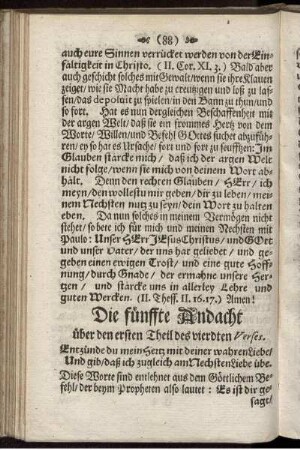 (88)
auch eure Sinnen verrücket werden von der Ein-
fältigkeit in Christo. (II. Cor. XI, 3.) Bald aber
auch geschicht solches mit Gewalt/ wenn sie ihre Klauen
zeiget/ wie sie Macht habe zu creutzigen und loß zu las-
sen/ das depoſuit zu spielen/ in den Bann zu thun/ und
so fort. Hat es nun dergleichen Beschaffenheit mit
der argen Welt/ daß sie ein frommes Hertz von dem
Worte/ Willen/ und Befehl GOttes suchet abzuführ-
ren/ ey so hat es Ursache/ fort und fort zu seufftzen: Im
Glauben stärcke mich/ daß ich der argen Welt
nicht folge/ wenn sie mich von deinem Wort ab-
hält. Denn den rechten Glauben/ HErr/ ich
meyn/ den wollestu mir geben/ dir zu leben/ mei-
nem Nechsten nutz zu seyn/ dein Wort zu halten
eben. Da nun solches in meinem Vermögen nicht
stehet/ so bete ich für mich und meinen Nechsten mit
Paulo: Unser HErr JEsus Christus/ und GOtt
und unser Vater/ der uns hat geliebet/ und ge-
geben einen ewigen Trost/ und eine gute Hoff-
nung/ durch Gnade/ der ermahne unsere Her-
tzen/ und stärcke uns in allerley Lehre und
guten Wercken. (II. Theff. II. 16. 17.) Amen!
Die fünffte Andacht
über den ersten Theil des vierdten Verses.
Entzünde du mein Hertz mit deiner wahren Liebe/
Und gib/ daß ich zugleich am Nechsten Liebe übe.
Diese Worte sind entlehnet aus dem Göttlichem Be-
fehl/ der beym Propheten also lautet: Es ist dir ge-
saget/